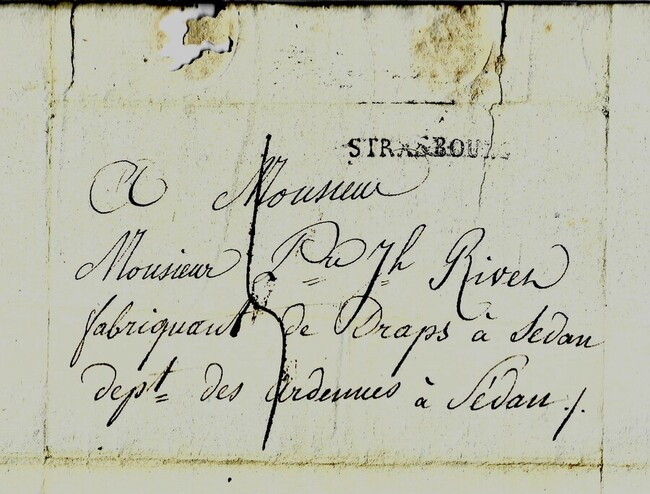 STRASBOURG
A Monsieur
Monsieur Pre Jh Riven
fabriquant de Draps à Sedan
dept des Ardennes à Sédan ./.